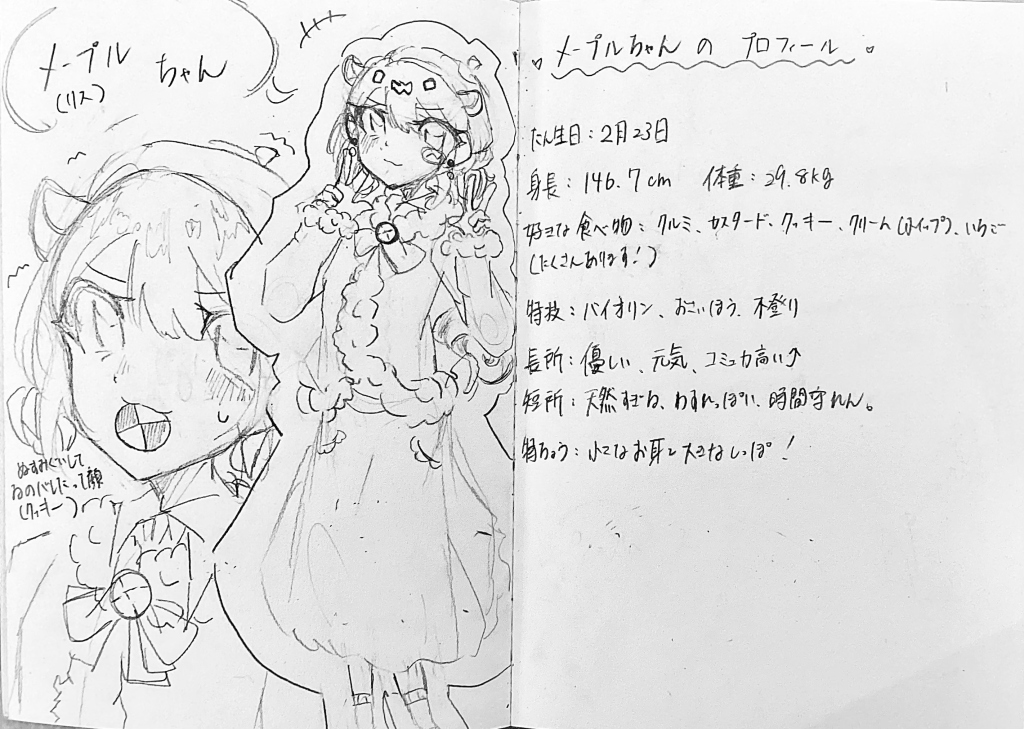 メープル ちゃん
(リス)
ぬすみぐいして
るのバレたって顔
(クッキー)
メープルちゃん の プロフィール
たん生日:2月23日
身長:146.7cm 体重:29.8kg
好きな食べ物:クルミ、カスタード、クッキー、クリーム(ホイップ)、いちご
(たくさんあります!)
特技:バイオリン、おさいほう、木登り
長所:優しい、元気、コミュ力高い↑
短所:天然すぎる、わすれっぽい、時間守れん。
特ちょう:小さなお耳と大きなしっぽ!